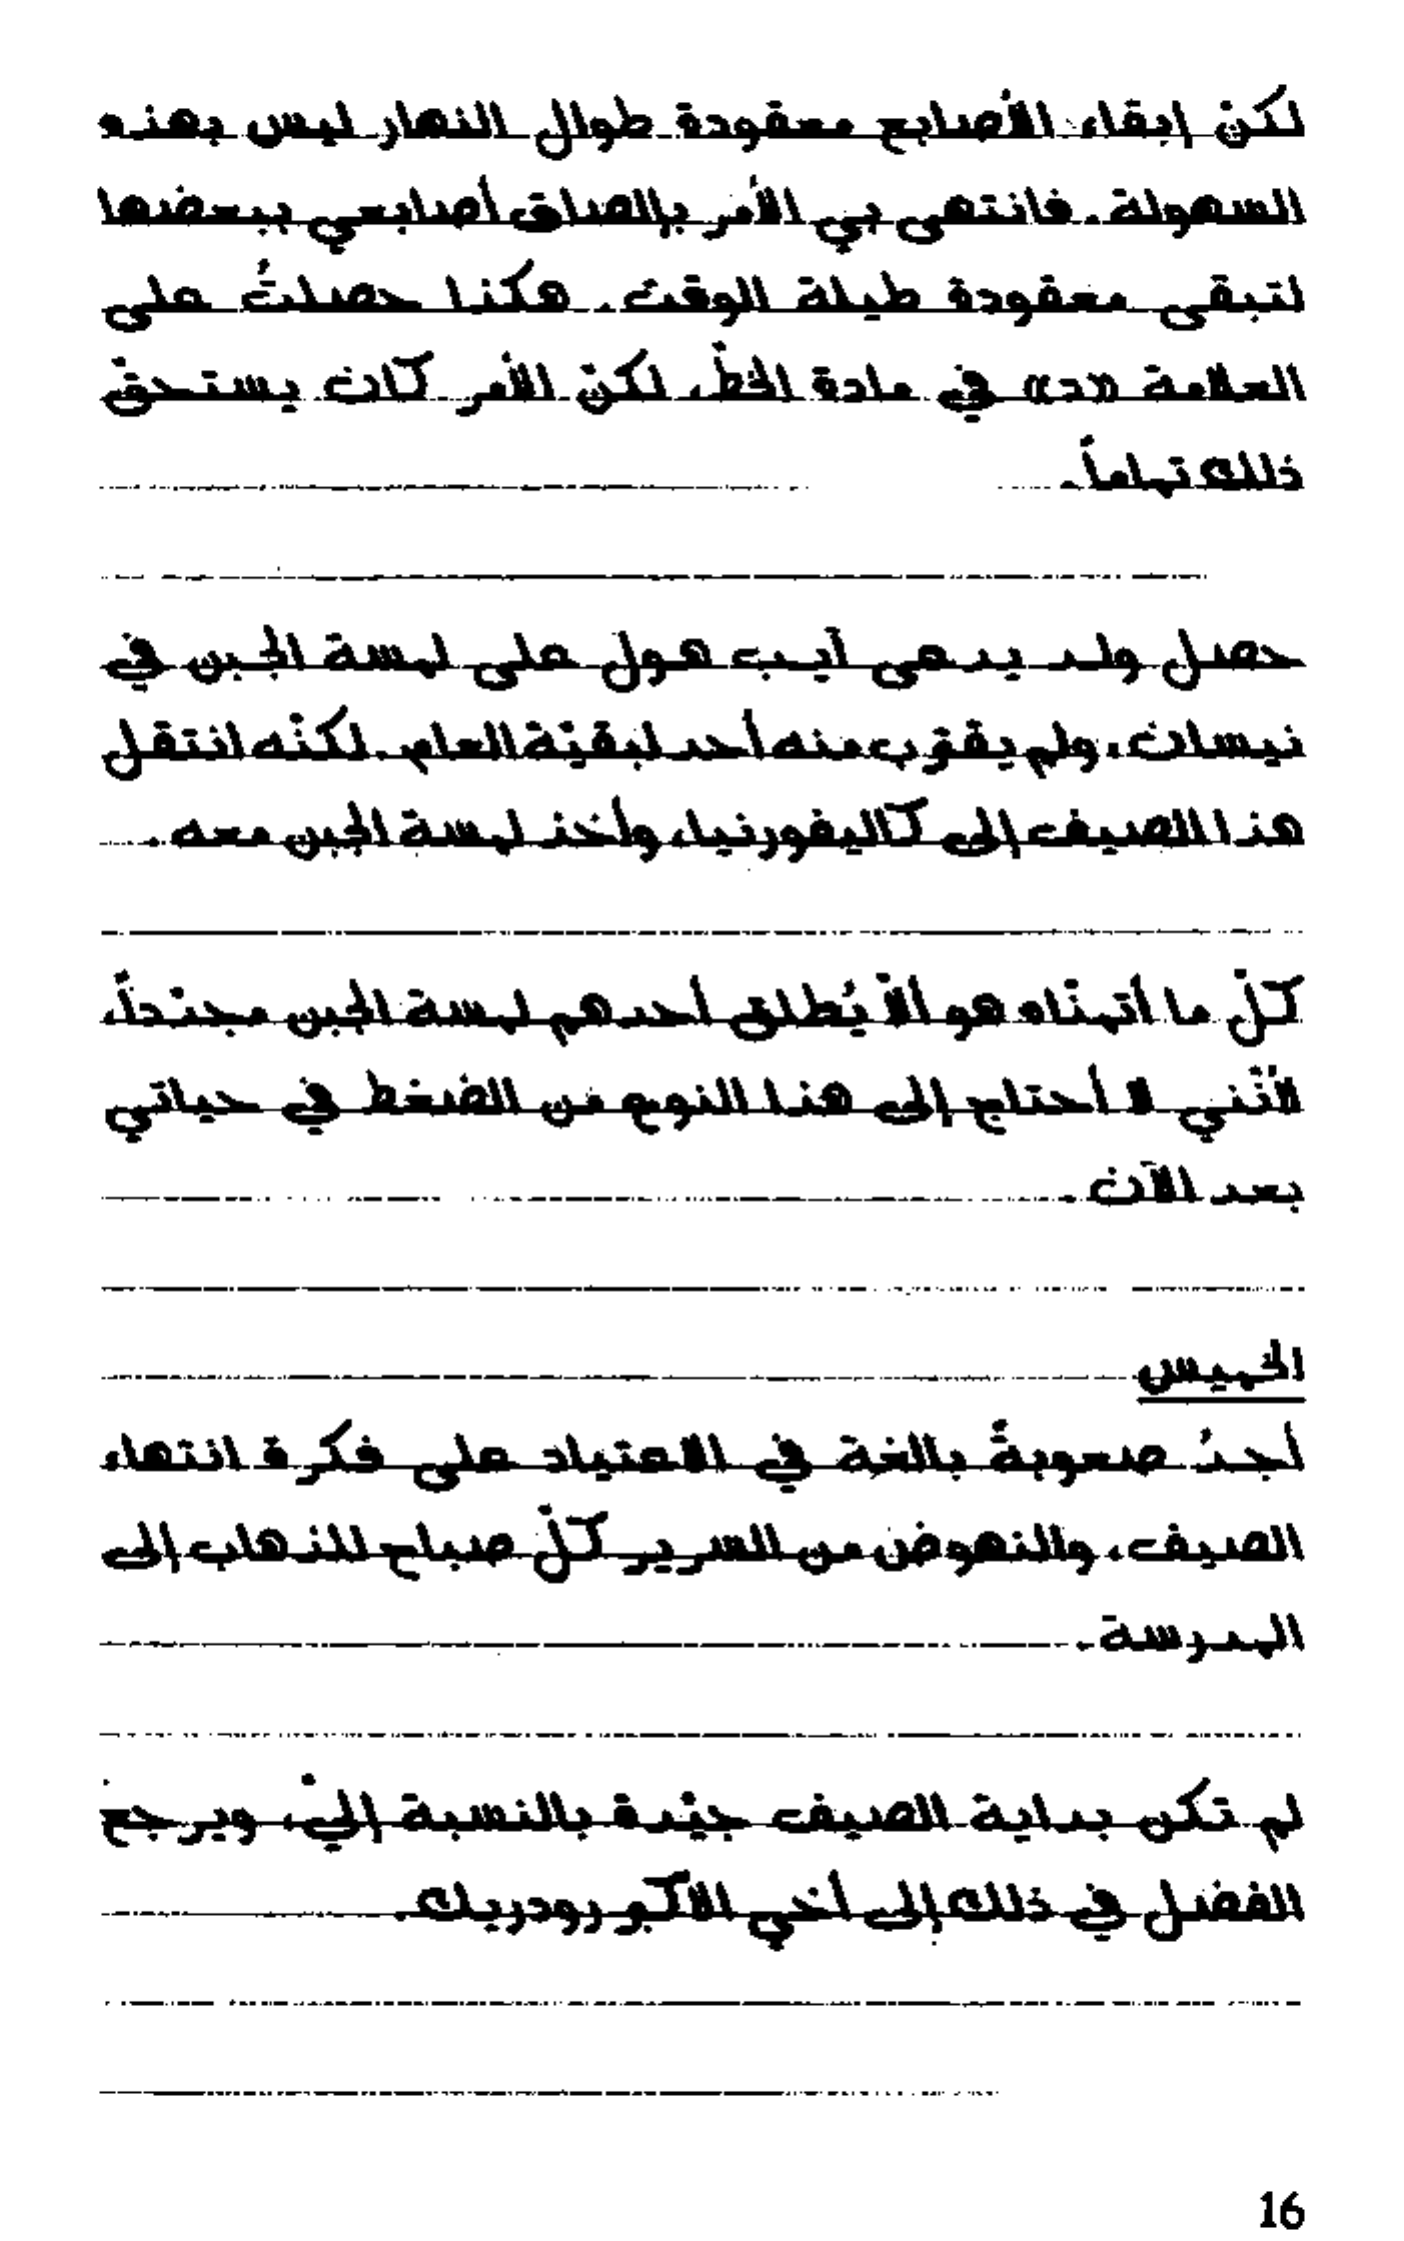 لكنّ إبقاء الأصابع معقودة طوال النهار ليس بهذه
السهولة. فانتهى بي الأمر بإلصاق أصابعي ببعضها
لتبقى معقودة طيلة الوقت. هكذا حصلتُ على
العلامة «د» في مادة الخطّ، لكنّ الأمر كان يستحقّ
ذلك تماماً.
حصل ولد يدعى آيب هول على لمسة الجبن في
نيسان، ولم يقترب منه أحد لبقيّة العام. لكنّه انتقل
هذا الصيف إلى كاليفورنيا، وأخذ لمسة الجبن معه.
كلّ ما أتمنّاه هو ألاّ يُطلق أحدهم لمسة الجبن مجدّداً،
لأنّني لا أحتاج إلى هذا النوع من الضغط في حياتي
بعد الآن.
الخميس
أجدُ صعوبةً بالغة في الاعتياد على فكرة انتهاء
الصيف، والنهوض من السرير كلّ صباح للذهاب إلى
المدرسة.
لم تكن بداية الصيف جيّدة بالنسبة إليّ، ويرجع
الفضل في ذلك إلى أخي الأكبر رودريك.
16